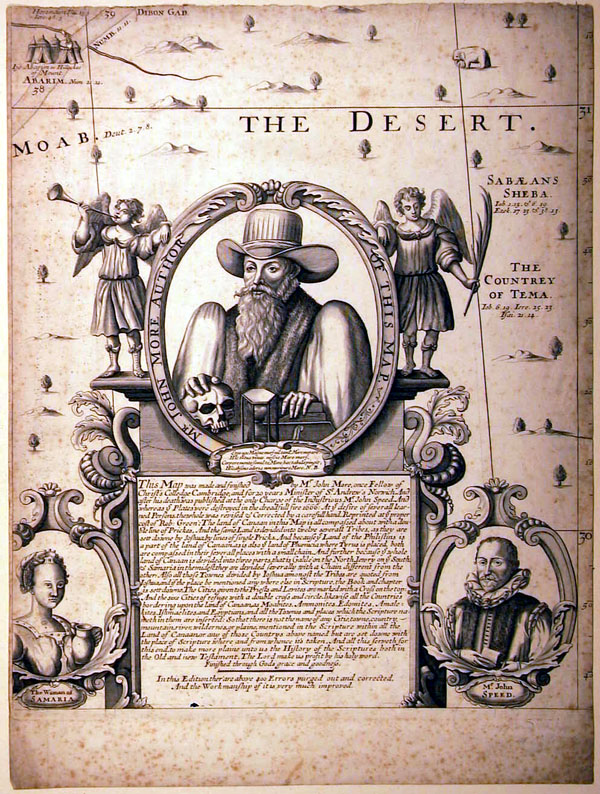 39
DIBON GAD.
NUMB.
of Mount
ABARIM. Num. 21.
38
MOAB. Deut. 2. 7. 8.
THE DESERT.
31
SABÆANS
SHEBA.
Iob. 1. 15. & 6. 19
THE
COUNTREY
OF TEMA.
Iob. 6. 19. Iere. 25. 23
Isai. 21. 14.
Mr. JOHN MORE AUTHOR OF THIS MAP
This Map was made and finished by Mr. John More, once Fellow of
Christ's Colledge Cambridge, and for 20 years Minister of St. Andrew's Norwich. And
after his death it was published at the only Charge of the Industrious Mr. John Speed. And
whereas ye Plates were destroyed in the dreadfull fire 1666: At ye desire of severall lear-
ned Persons, the whole hath been revised Corrected & now again Reprinted at ye proper
cost of Rob: Green: The land of Canaan in this Map is all compassed about with a dou
ble line of Prickes, And the same Land is devided into twelve severall Tribes, as they are
set down by Joshua by lines of single Pricks. And because ye Land of the Philistins is
a part of the land of Canaan, as is also ye land of Phenicia where Tyrus is placed, both
are compassed in their severall places with a small chain. And further because ye whole
land of Canaan is devided into three parts, that is Galile on the North, Jewry on ye South,
& Samaria in the midst they are devided severally with a Chain different from the
other. Also all those Townes devided by Joshua amongst the Tribes are quoted from
Joshua, and if the place be mentioned any where else in Scripture, the Book and Chapter
is set down. The Cities given to the Preists and Levites are marked with a Cross on the top:
And the six Cities of refuge with a double cross and circle. likewise all the Countries
bordering upon the land of Canaan as Moabites, Ammonites, Edomites, Amale-
kites, Ishmaelites, and Egyptians, and all the Townes and places which the Scripture na-
meth in them are inserted: So that there is not the name of any Citie, towne, country,
mountain, river, wildernes, or plaine, mentioned in the Scripture, within all the
Land of Canaan or any of those Countrys above named but are set downe with
the place of Scripture where and from whence tis taken. And all this serveth for
this end, to make more plaine unto us the History of the Scriptures both in
the Old and new Testament. The Lord make us profit by his holy word.
Finished through Gods grace and goodness.
In this Edition ther are above 400 Errors purged out and corrected,
And the Workmanship of it is very much improved.
30
The Woman of
SAMARIA
Mr. John
SPEED.